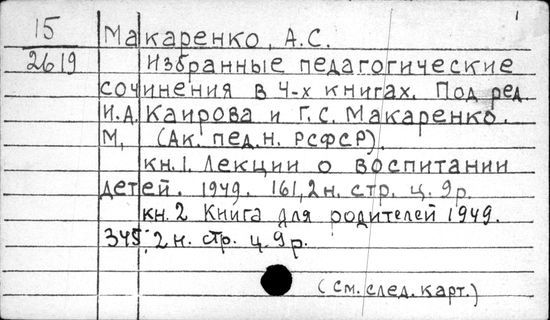 1
15 Макаренко, А.С.
2619 Избранные педагогические
сочинения в 4-х книгах. Под ред.
И.А. Каирова и Г.С. Макаренко.
М, (Ак. пед.н. РСФСР).
кн.1. Лекции о воспитании
детей. 1949. 161,2н. стр. ц. 9р.
кн.2 Книга для родителей 1949.
345; 2н. стр. ц. 9р.
(см. след. карт.)